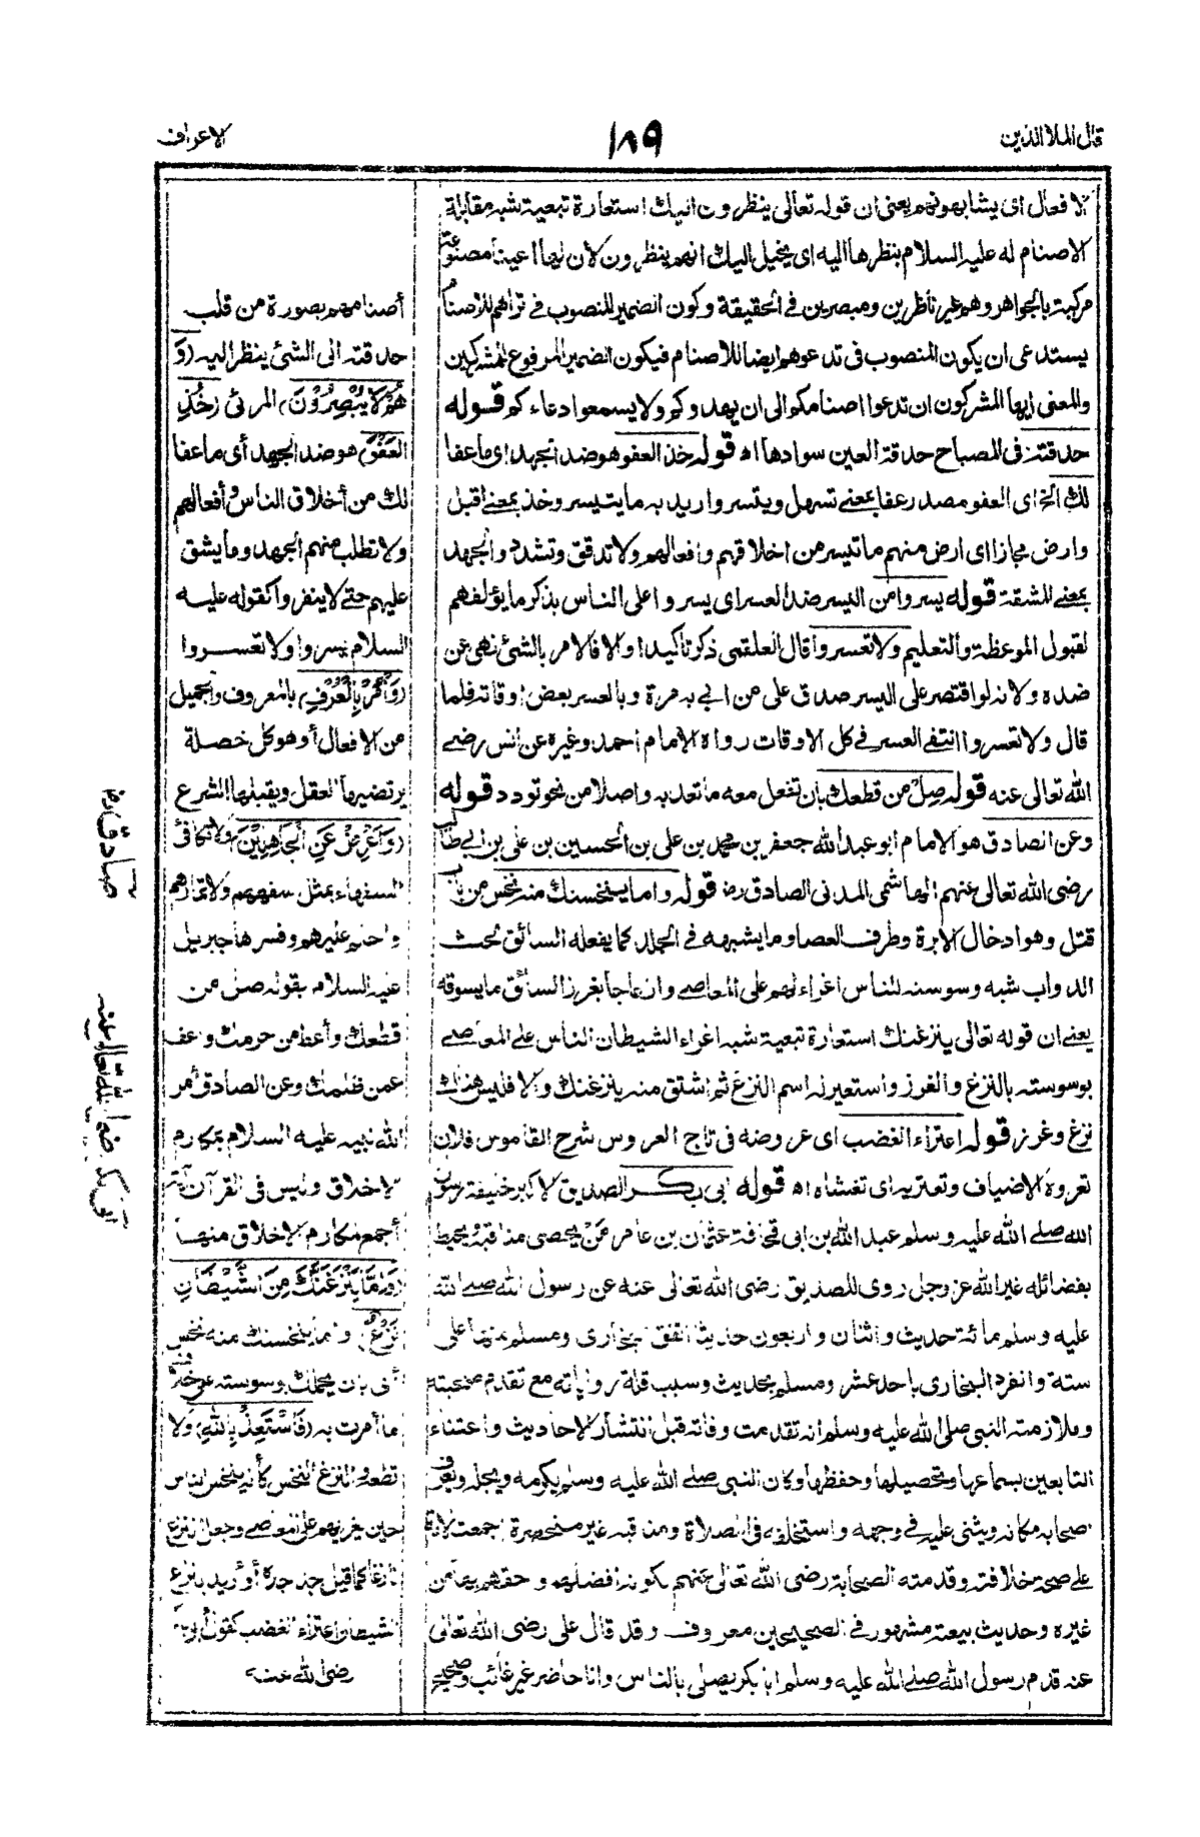 قال الملا الذين
١٨٩
الاعراف
الافعال اى يشابهونهم يعنى ان قوله تعالى ينظرون اليك استعارة تبعية شبه مقابلة
الاصنام له عليه السلام بنظرها اليه اى يخيل اليك انهم ينظرون لان لها اعينا مصنوعة
مركبة بالجواهر وهم غير ناظرين ومبصرين فى الحقيقة وكون الضمير المنصوب فى تراهم للاصنام
يستدعى ان يكون المنصوب فى تدعوهم ايضا للاصنام فيكون الضمير المرفوع للمشركين
والمعنى ايها المشركون ان تدعوا اصنامكم الى ان يهدوكم ولا يسمعوا دعاءكم قوله
حدقته فى المصباح حدقة العين سوادها اه قوله خذ العفو هو ضد الجهد اى ما عفا
لك الخ اى العفو مصدر عفا بمعنى تسهل ويتسر واريد به ما يتيسر وخذ بمعنى اقبل
وارض مجازا اى ارض منهم ما تيسر من اخلاقهم وافعالهم ولا تدقق وتشدد والجهد
بمعنى المشقة قوله يسروا من اليسر ضد العسر اى يسروا على الناس بذكر ما يؤلفهم
لقبول الموعظة والتعليم ولا تعسروا قال العلقمى ذكر تأكيدا ولا فالامر بالشئ نهى عن
ضده ولانه لو اقتصر على اليسر صدق على من اتى به مرة وبالعسر بعض اوقاته فلما
قال ولا تعسروا انتفى العسر فى كل الاوقات رواه الامام احمد وغيره عن انس رضى
الله تعالى عنه قوله صل من قطعك بان تفعل معه ما تعد به واصلا من نحو تودد قوله
وعن الصادق هو الامام ابو عبد الله جعفر بن محمد بن على بن الحسين بن على بن ابى طالب
رضى الله تعالى عنهم الهاشمى المدنى الصادق رض قوله واما ينخسنك منه نخس من باب
قتل وهو ادخال الابرة وطرف العصا وما يشبهه فى الجلد كما يفعله السائق لحث
الدواب شبه وسوسته للناس اغراء لهم على المعاصى وازعاجا بغرز السائق ما يسوقه
يعنى ان قوله تعالى ينزغنك استعارة تبعية شبه اغراء الشيطان الناس على المعاصى
بوسوسته بالنزغ والغرز واستعير له اسم النزغ ثم اشتق منه ينزغنك والا فليس هناك
نزغ وغرز قوله اعتراء الغضب اى عروضه فى تاج العروس شرح القاموس فلان
تعروه الاضياف وتعتريه اى تغشاه اه قوله ابى بكر الصديق الاكبر خليفة رسول
الله صلى الله عليه وسلم عبد الله بن ابى قحافة عثمان بن عامر من يحصى مناقبه ويحيط
بفضائله غير الله عز وجل روى للصديق رضى الله تعالى عنه عن رسول الله صلى الله
عليه وسلم مائة حديث واثنان واربعون حديثا اتفق البخارى ومسلم منها على
ستة وانفرد البخارى باحد عشر ومسلم بحديث وسبب قلة رواياته مع تقدم صحبته
وملازمته النبى صلى الله عليه وسلم انه تقدمت وفاته قبل انتشار الاحاديث واعتناء
التابعين بسماعها وتحصيلها وحفظها وكان النبى صلى الله عليه وسلم يكرمه ويجله ويعرف
صحابه مكانه ويثنى عليه فى وجهه واستخلفه فى الصلاة ومناقبه غير منحصرة اجمعت الامة
على صحة خلافته وقدمته الصحابة رضى الله تعالى عنهم لكونه افضلهم وحقهم بها من
غيره وحديث بيعته مشهور فى الصحيحين معروف وقد قال على رضى الله تعالى
عنه قدم رسول الله صلى الله عليه وسلم ابا بكر يصلى بالناس وانا حاضر غير غائب وصحيح
أصنامهم بصورة من قلب
حدقته الى الشئ ينظر اليه (وَ
هُمْ لَا يُبْصِرُونَ) المرئى (خُذِ
العَفْوَ) هو ضد الجهد أى ما عفا
لك من أخلاق الناس وأفعالهم
ولا تطلب منهم الجهد وما يشق
عليهم حتى لا ينفروا كقوله عليه
السلام يسروا ولا تعسروا
(وَأْمُرْ بِالْعُرْفِ) بالمعروف والجميل
من الافعال أو هو كل خصلة
يرتضيها العقل ويقبلها الشرع
(وَأَعْرِضْ عَنِ الْجَاهِلِينَ) ولا تكافئ
السفهاء بمثل سفههم ولا تمارهم
واحلم عليهم وفسرها جبريل
عليه السلام بقوله صل من
قطعك وأعط من حرمك واعف
عمن ظلمك وعن الصادق أمر
الله نبيه عليه السلام بمكارم
الاخلاق وليس فى القرآن آية
أجمع لمكارم الاخلاق منها
(وَاِمَّا يَنْزَغَنَّكَ مِنَ الشَّيْطَانِ
نَزْغٌ) واما ينخسنك منه نخس
أى بان يحملك بوسوسته على خلاف
ما أمرت به (فَاسْتَعِذْ بِاللهِ) ولا
تطعه والنزغ النخس كأنه ينخس الناس
حين يغريهم على المعاصى وجعل النزغ
نازغا كما قيل جد جده أو أريد بنزغ
الشيطان اعتراء الغضب كقول أبى بكر
رضى الله عنه
صادق رض
ابى بكر رضى الله تعالى عنه